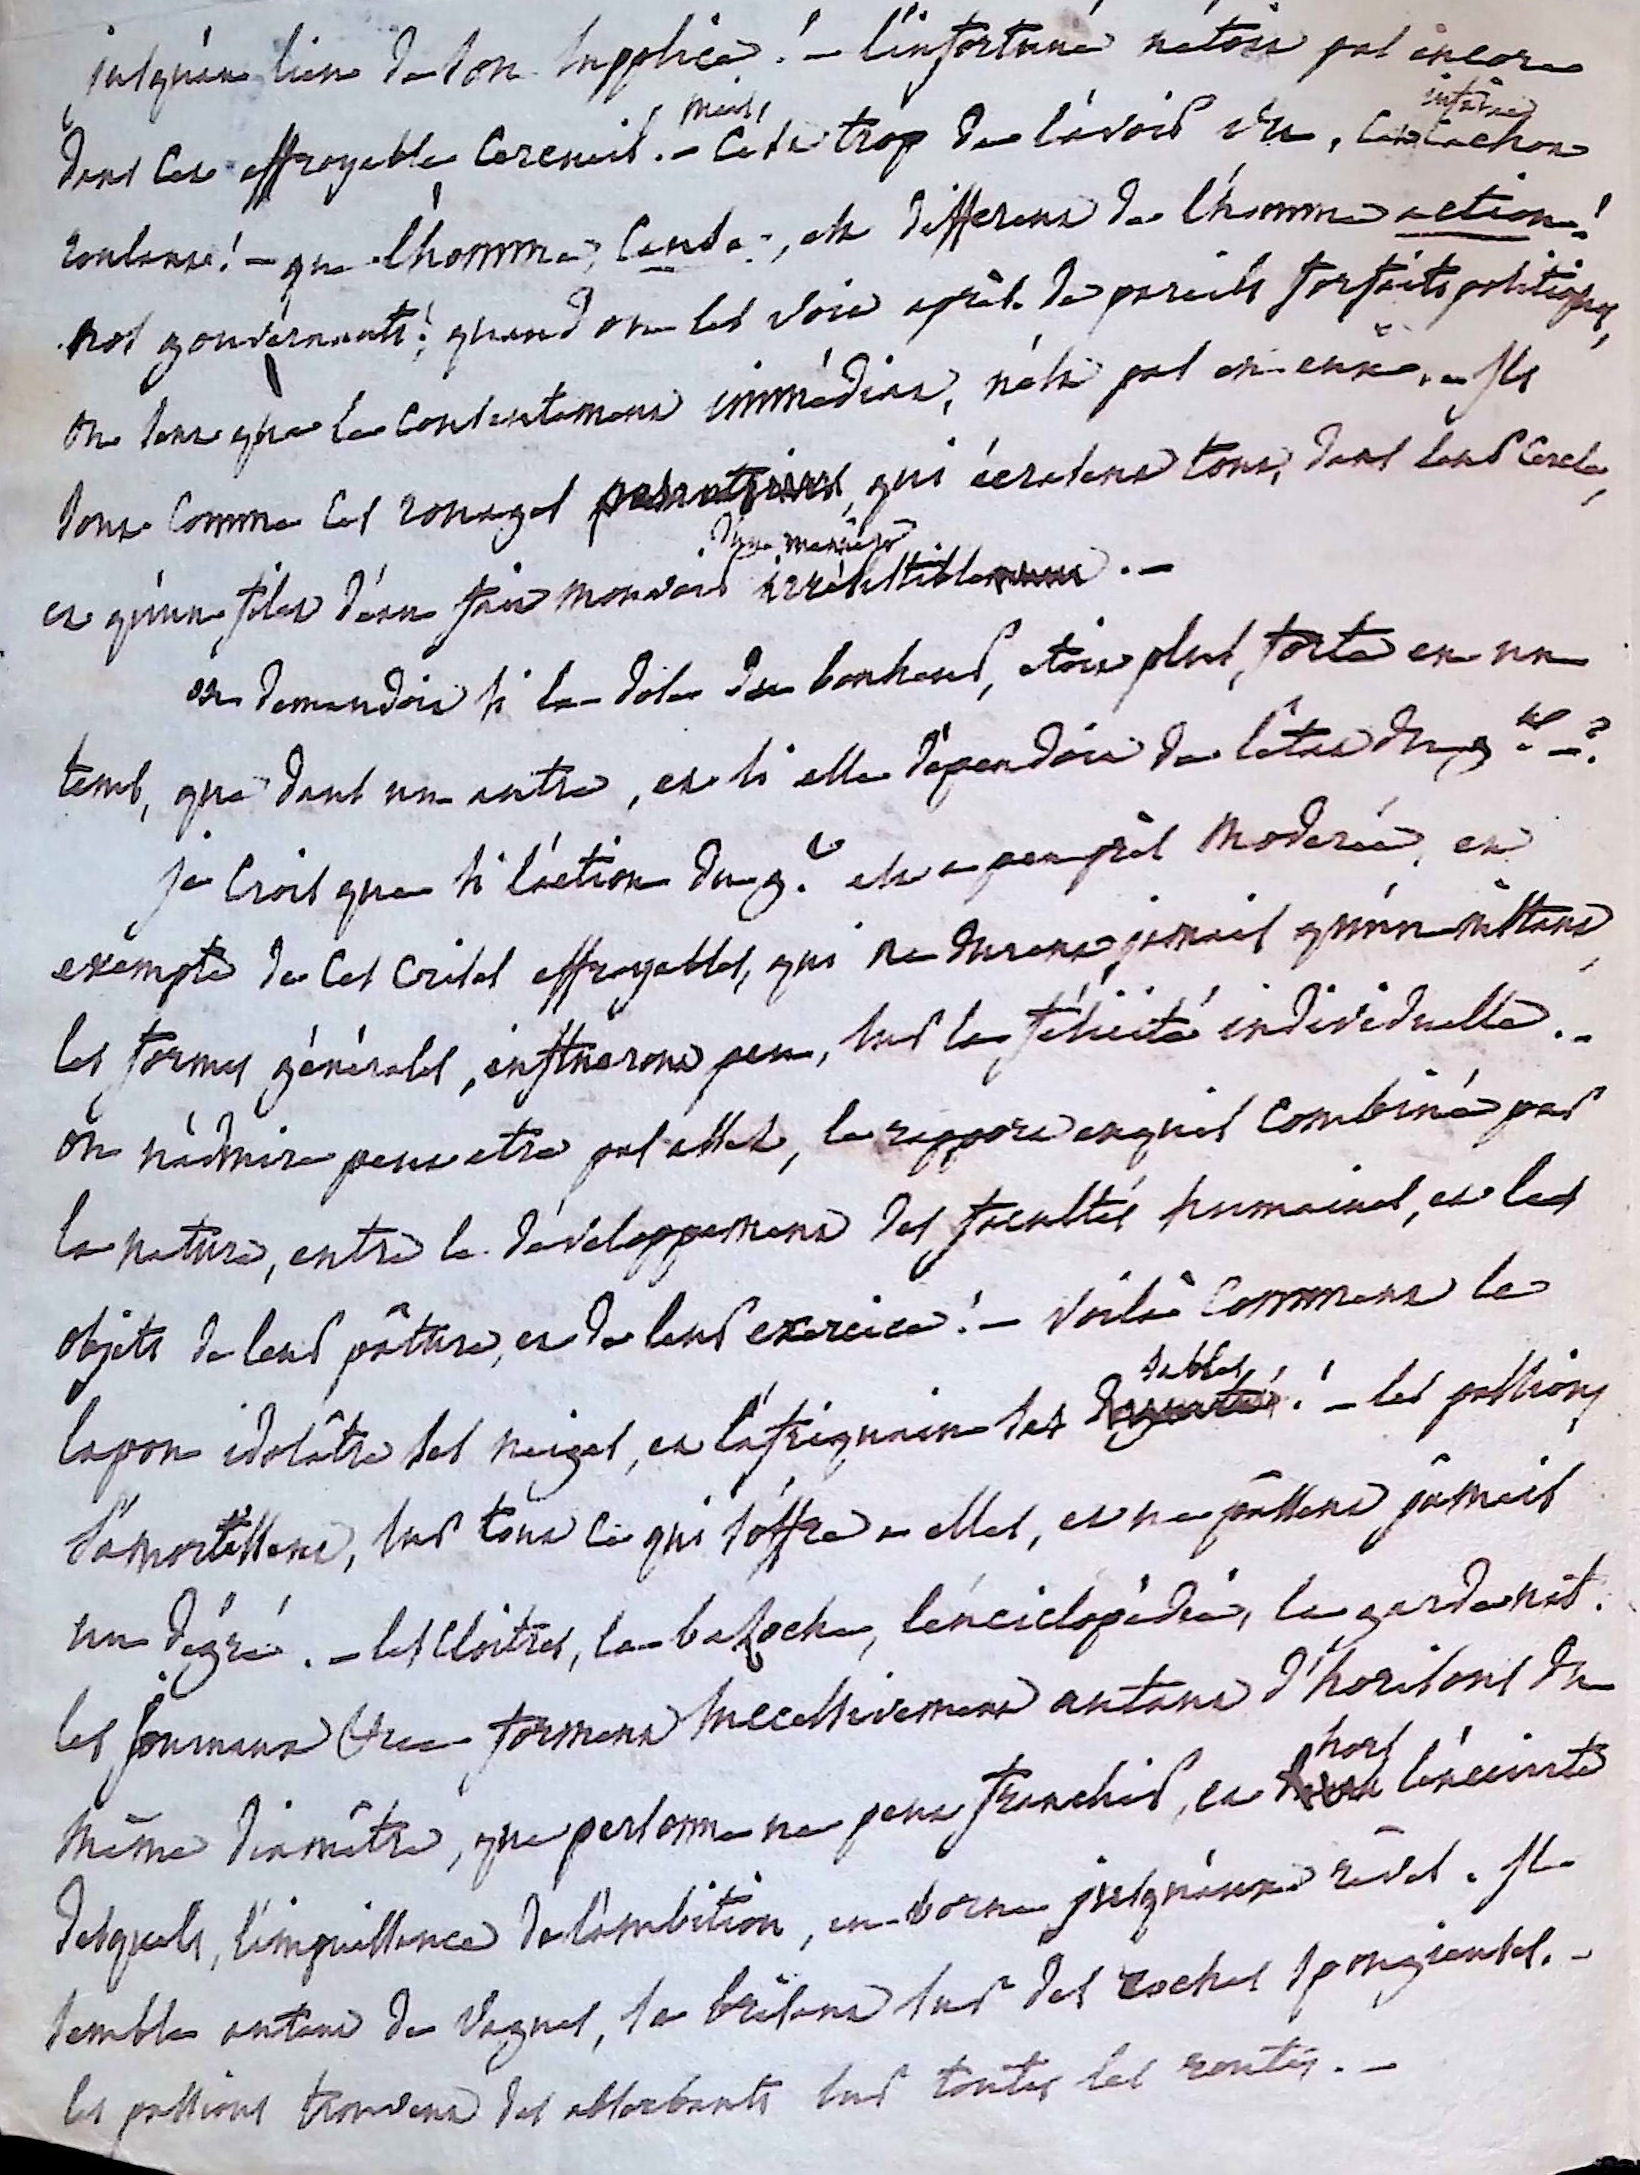 jusqu'au lieu de son supplice ! – l'infortuné n'étoit pas encore
dans cet effroyable cercueil. – mais c'est trop de l'avoir vu, cet infame cachot
roulant ! – que l'homme, cause, est different de l'homme action !
nos gouvernants ! quand on les voit après de pareils forfaits politiques,
on sent que le contentement immédiat, n'est pas en eux. – Ils
sont comme ces rouages qui écrasent tout, dans leur cercle,
et qu'un filet d'eau fait mouvoir d'une manière irrésistible. –
on demandoit si la dose du bonheur, etoit plus forte en un
tems, que dans un autre, et si elle dépendoit de l'état du g.t – ?
je crois que si l'action du g.t est a peu près moderée, et
exempte de ces crises effroyables, qui ne durent jamais qu'un instant,
les formes générales, influeront peu, sur la félicité individuelle. –
on n'admire peut etre pas assez, le rapport exquis combiné par
la nature, entre le développement des facultés humaines, et les
objets de leur pâture, et de leur exercice ! – voilà comment le
lapon idolâtre ses neiges, et l'afriquain ses sables ! – les passions
s'amortissent, sur tout ce qui s'offre a elles, et ne passent jamais
un dégré. – les cloitres, la bazoche, l'enciclopédie, la garde nat.
les journaux &c. forment successivement autant d'horisons du
même diamêtre, que personne ne peut franchir, et hors l'enceinte
desquels, l'impuissance de l'ambition, se borne jusqu'aux rêves. Il
semble autant de vagues, se brisant sur des roches spongieuses. –
les passions trouvent des absorbants sur toutes les routes. –